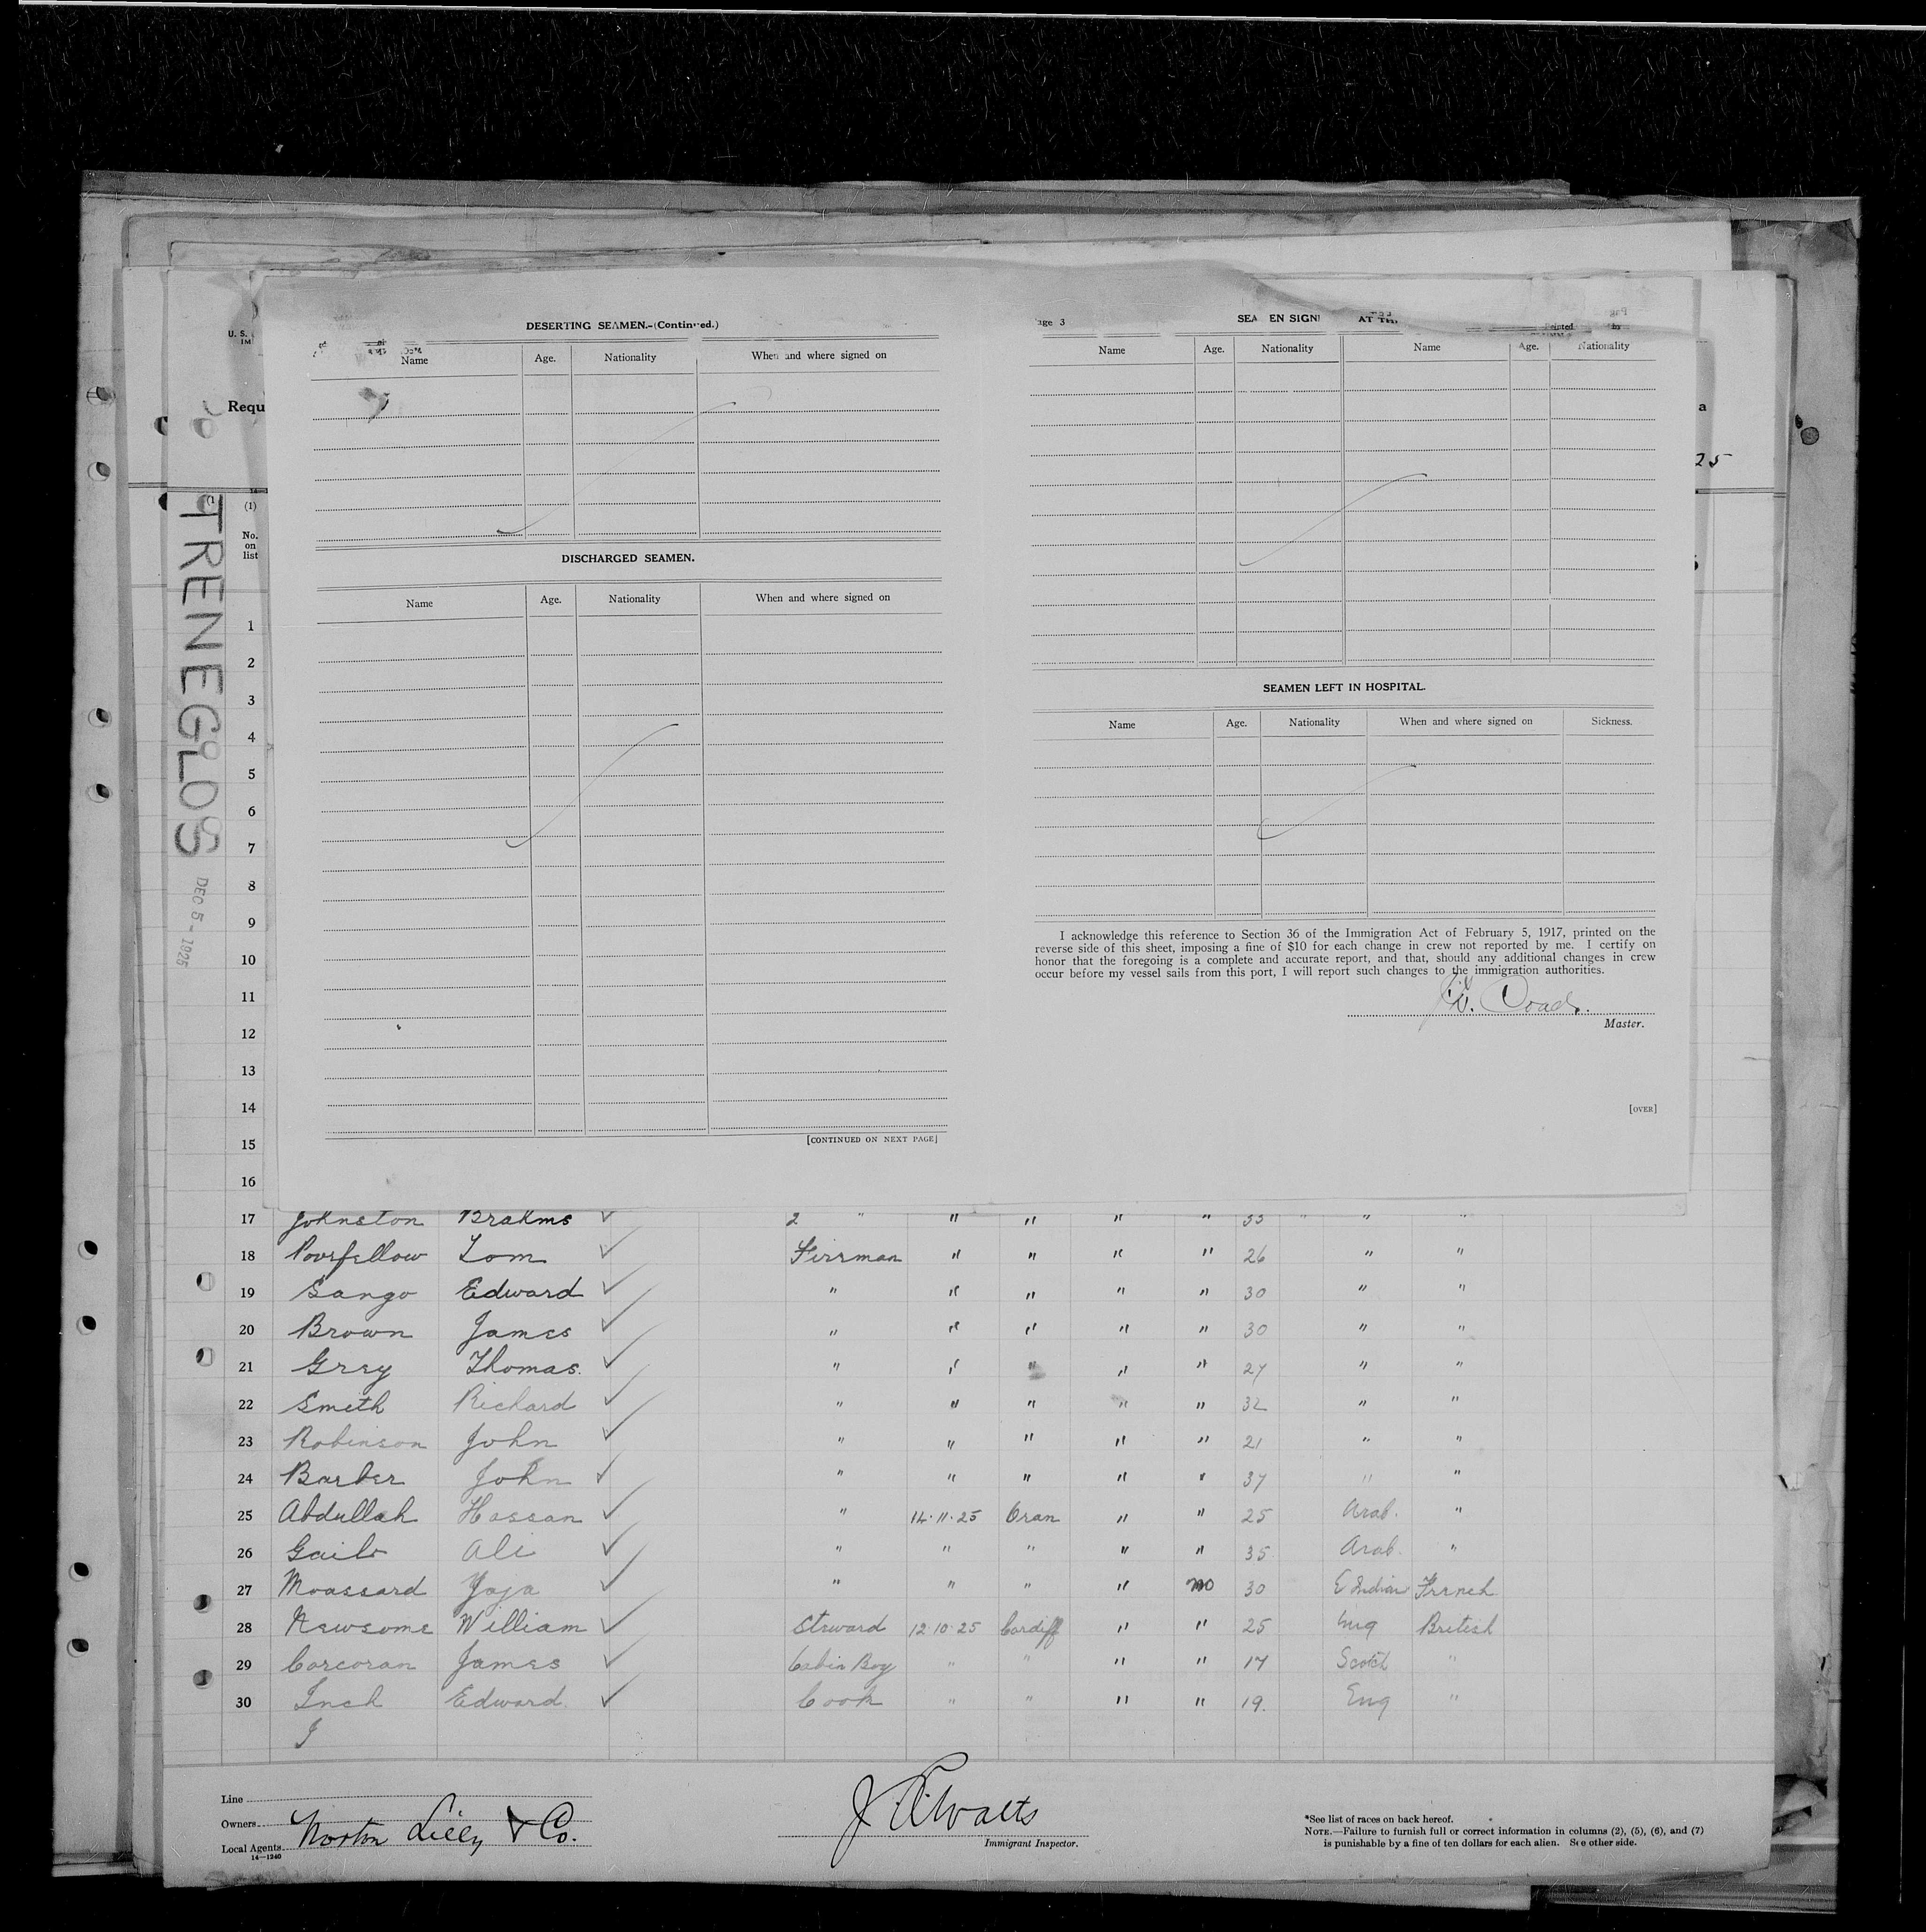 U. S.
IM
Requ
a
25
TRENEGLOS
DEC 5 - 1925
(1)
No.
on
list
DESERTING SEAMEN.-(Continued.)
Name Age. Nationality When and where signed on
DISCHARGED SEAMEN.
Name Age. Nationality When and where signed on
[CONTINUED ON NEXT PAGE]
age 3
SEA EN SIGN AT TH
Name Age. Nationality Name Age. Nationality
SEAMEN LEFT IN HOSPITAL.
Name Age. Nationality When and where signed on Sickness.
I acknowledge this reference to Section 36 of the Immigration Act of February 5, 1917, printed on the
reverse side of this sheet, imposing a fine of $10 for each change in crew not reported by me. I certify on
honor that the foregoing is a complete and accurate report, and that, should any additional changes in crew
occur before my vessel sails from this port, I will report such changes to the immigration authorities.
Coad.
Master.
[OVER]
1
2
3
4
5
6
7
8
9
10
11
12
13
14
15
16
17 Johnston Brahms 2 " " " " " 33 " " "
18 Poorfellow Tom Firrman " " " " 26 " "
19 Sango Edward " " " " " 30 " "
20 Brown James " " " " " 30 " "
21 Grey Thomas. " " " " " 27 " "
22 Smith Richard " " " " " 32 " "
23 Robinson John " " " " " 21 " "
24 Barber John " " " " " 37 " "
25 Abdullah Hassan " 14.11.25 Oran " " 25 Arab. "
26 Gaile Ali " " " " " 35 Arab. "
27 Moassard Yaja " " " " no 30 E Indian French
28 Newsome William Steward 12.10.25 Cardiff " " 25 Eng British
29 Corcoran James Cabin Boy " " " " 17 Scotch "
30 Inch Edward. Cook " " " " 19. Eng "
J
Line
Owners
Local Agents Norton Lilly & Co.
14—1240
Watts
Immigrant Inspector.
*See list of races on back hereof.
NOTE.—Failure to furnish full or correct information in columns (2), (5), (6), and (7)
is punishable by a fine of ten dollars for each alien. See other side.